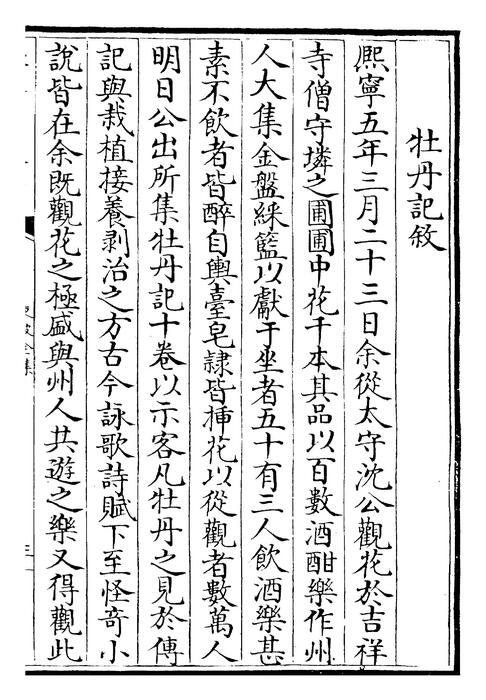 牡丹記敘
熈寧五年三月二十三日余從太守沈公觀花於吉祥
寺僧守璘之圃圃中花千本其品以百數酒酣樂作州
人大集金盤綵籃以獻于坐者五十有三人飲酒樂甚
素不飲者皆醉自輿臺皂隷皆揷花以從觀者數萬人
明日公出所集牡丹記十卷以示客凡牡丹之見於傳
記與栽植接養剥治之方古今詠歌詩賦下至怪竒小
說皆在余既觀花之極盛與州人共遊之樂又得觀此